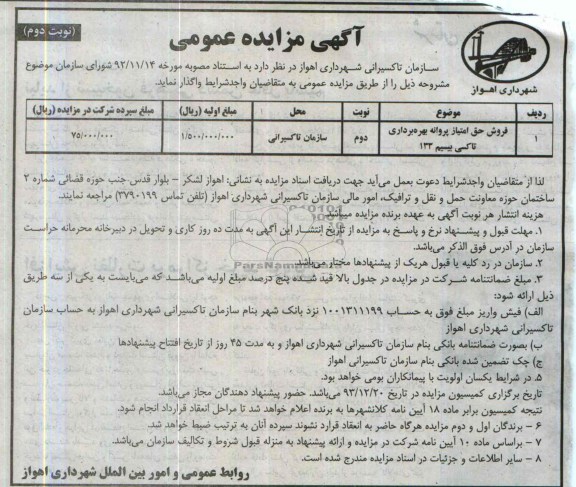 (نوبت دوم)
آگهی مزایده عمومی
شهرداری اهواز
سازمان تاکسیرانی شهرداری اهواز در نظر دارد به استناد مصوبه مورخه ۹۲/۱۱/۱۴ شورای سازمان موضوع
مشروحه ذیل را از طریق مزایده عمومی به متقاضیان واجدشرایط واگذار نماید.
ردیف موضوع نوبت محل مبلغ اولیه (ریال) مبلغ سپرده شرکت در مزایده (ریال)
۱ فروش حق امتیاز پروانه بهره‌برداری تاکسی بیسیم ۱۳۳ دوم سازمان تاکسیرانی ۱/۵۰۰/۰۰۰/۰۰۰ ۷۵/۰۰۰/۰۰۰
لذا از متقاضیان واجدشرایط دعوت بعمل می‌آید جهت دریافت اسناد مزایده به نشانی: اهواز لشکر - بلوار قدس جنب حوزه قضائی شماره ۲
ساختمان حوزه معاونت حمل و نقل و ترافیک، امور مالی سازمان تاکسیرانی شهرداری اهواز (تلفن تماس ۳۷۹۰۱۹۹) مراجعه نمایند.
هزینه انتشار هر نوبت آگهی به عهده برنده مزایده میباشد.
۱. مهلت قبول و پیشنهاد نرخ و پاسخ به مزایده از تاریخ انتشار این آگهی به مدت ده روز کاری و تحویل در دبیرخانه محرمانه حراست
سازمان در آدرس فوق الذکر می‌باشد.
۲. سازمان در رد کلیه یا قبول هریک از پیشنهادها مختار می‌باشد.
۳. مبلغ ضمانتنامه شرکت در مزایده در جدول بالا قید شده پنج درصد مبلغ اولیه می‌باشد که می‌بایست به یکی از سه طریق
ذیل ارائه شود:
الف) فیش واریز مبلغ فوق به حساب ۱۰۰۱۳۱۱۱۹۹ نزد بانک شهر بنام سازمان تاکسیرانی شهرداری اهواز به حساب سازمان
تاکسیرانی شهرداری اهواز
ب) بصورت ضمانتنامه بانکی بنام سازمان تاکسیرانی شهرداری اهواز و به مدت ۴۵ روز از تاریخ افتتاح پیشنهادها
ج) چک تضمین شده بانکی بنام سازمان تاکسیرانی اهواز
۵. در شرایط یکسان اولویت با پیمانکاران بومی خواهد بود.
تاریخ برگزاری کمیسیون مزایده در تاریخ ۹۳/۱۲/۲۰ می‌باشد. حضور پیشنهاد دهندگان مجاز می‌باشد.
نتیجه کمیسیون برابر ماده ۱۸ آیین نامه کلانشهرها به برنده اعلام خواهد شد تا مراحل انعقاد قرارداد انجام شود.
۶ - برندگان اول و دوم مزایده هرگاه حاضر به انعقاد قرارد نشوند سپرده آنان به ترتیب ضبط خواهد شد.
۷ - براساس ماده ۱۰ آیین نامه شرکت در مزایده و ارائه پیشنهاد به منزله قبول شروط و تکالیف سازمان می‌باشد.
۸ - سایر اطلاعات و جزئیات در اسناد مزایده مندرج شده است.
روابط عمومی و امور بین الملل شهرداری اهواز